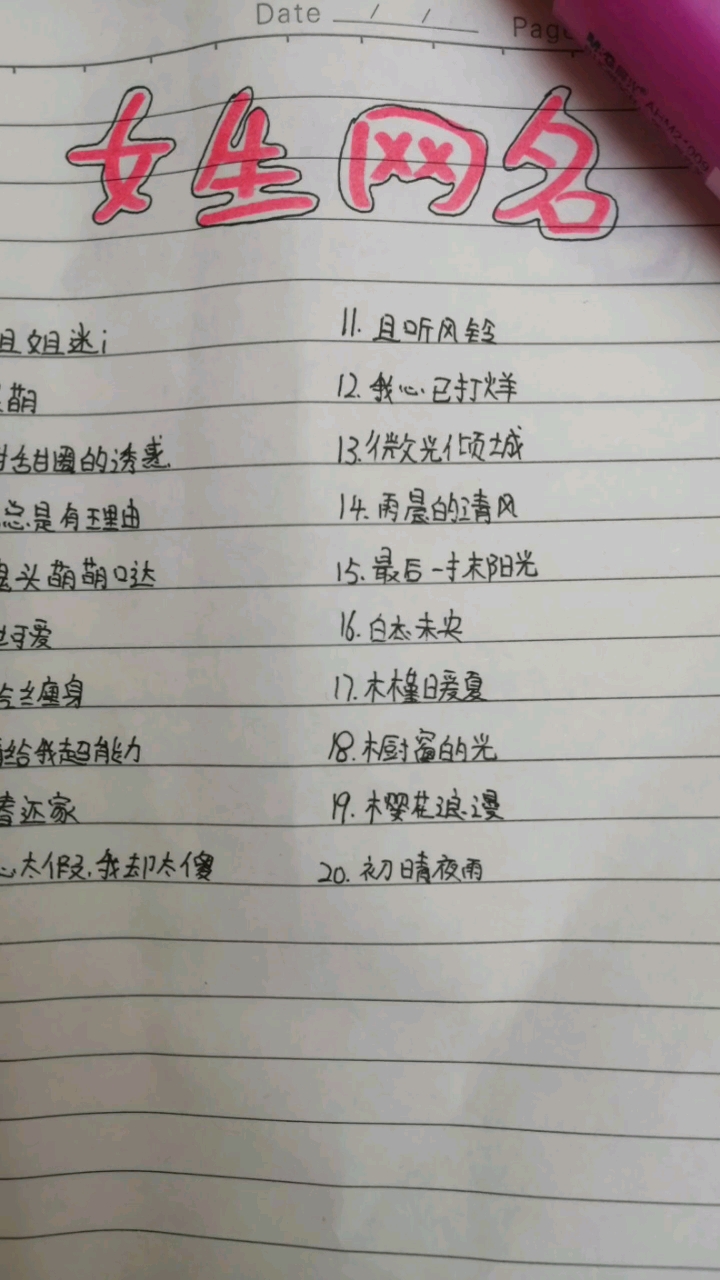 Date / /
Page
女生网名
姐迷i
萌
甜圈的诱惑
总是有理由
头萌萌口达
可爱
瘦身
给我超能力
还家
太假,我却太傻
11. 且听风铃
12. 我心已打烊
13. 微光倾城
14. 雨晨的清风
15. 最后一抹阳光
16. 白态未央
17. 木槿暖夏
18. 橱窗的光
19. 樱花浪漫
20. 初晴夜雨